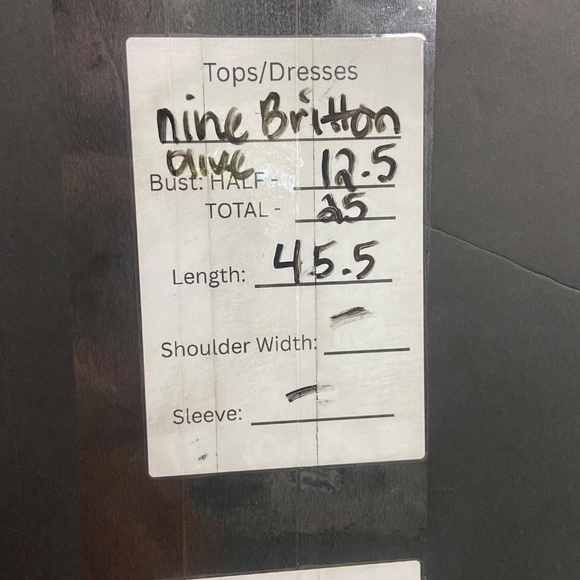 Tops/Dresses
nine Britton
olive
Bust: HALF - 12.5
TOTAL - 25
Length: 45.5
Shoulder Width: -
Sleeve: -